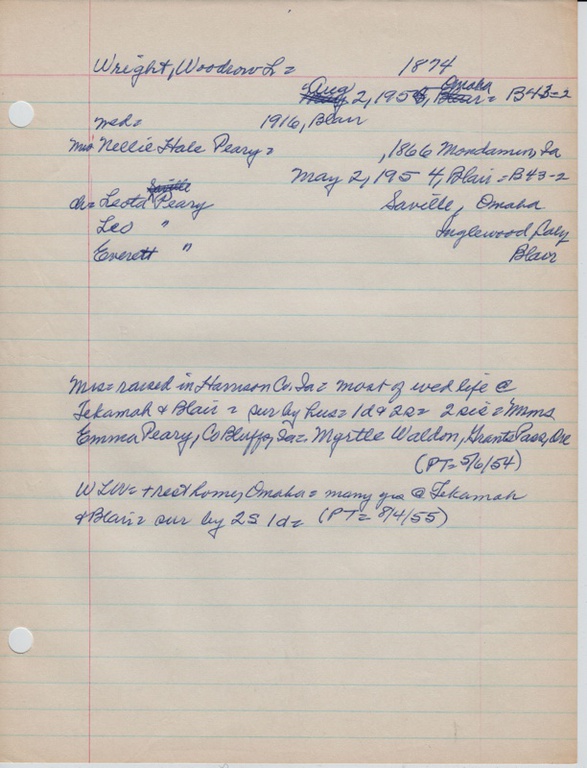 Wright, Woodrow L = 1874
= Aug 2, 195, Omaha = B43-2
wed = 1916, Blair
Mrs Nellie Hale Peary = , 1866 Mondamin, Ia
May 2, 1954, Blair = B43-2
ch = Leota Peary Saville, Omaha
Leo " Inglewood, Caly
Everett " Blair
Mrs = raised in Harrison Co. Ia = most of wed life @
Tekamah & Blair = sur by hus = 1d & 2s = 2 sis = Mrms
Emma Peary, Co Bluffs, Ia = Myrtle Waldon, Grants Pass, Ore
(PT = 5/6/54)
WLW = + rest home, Omaha = many yrs @ Tekamah
& Blair = sur by 2s 1d = (PT = 8/4/55)